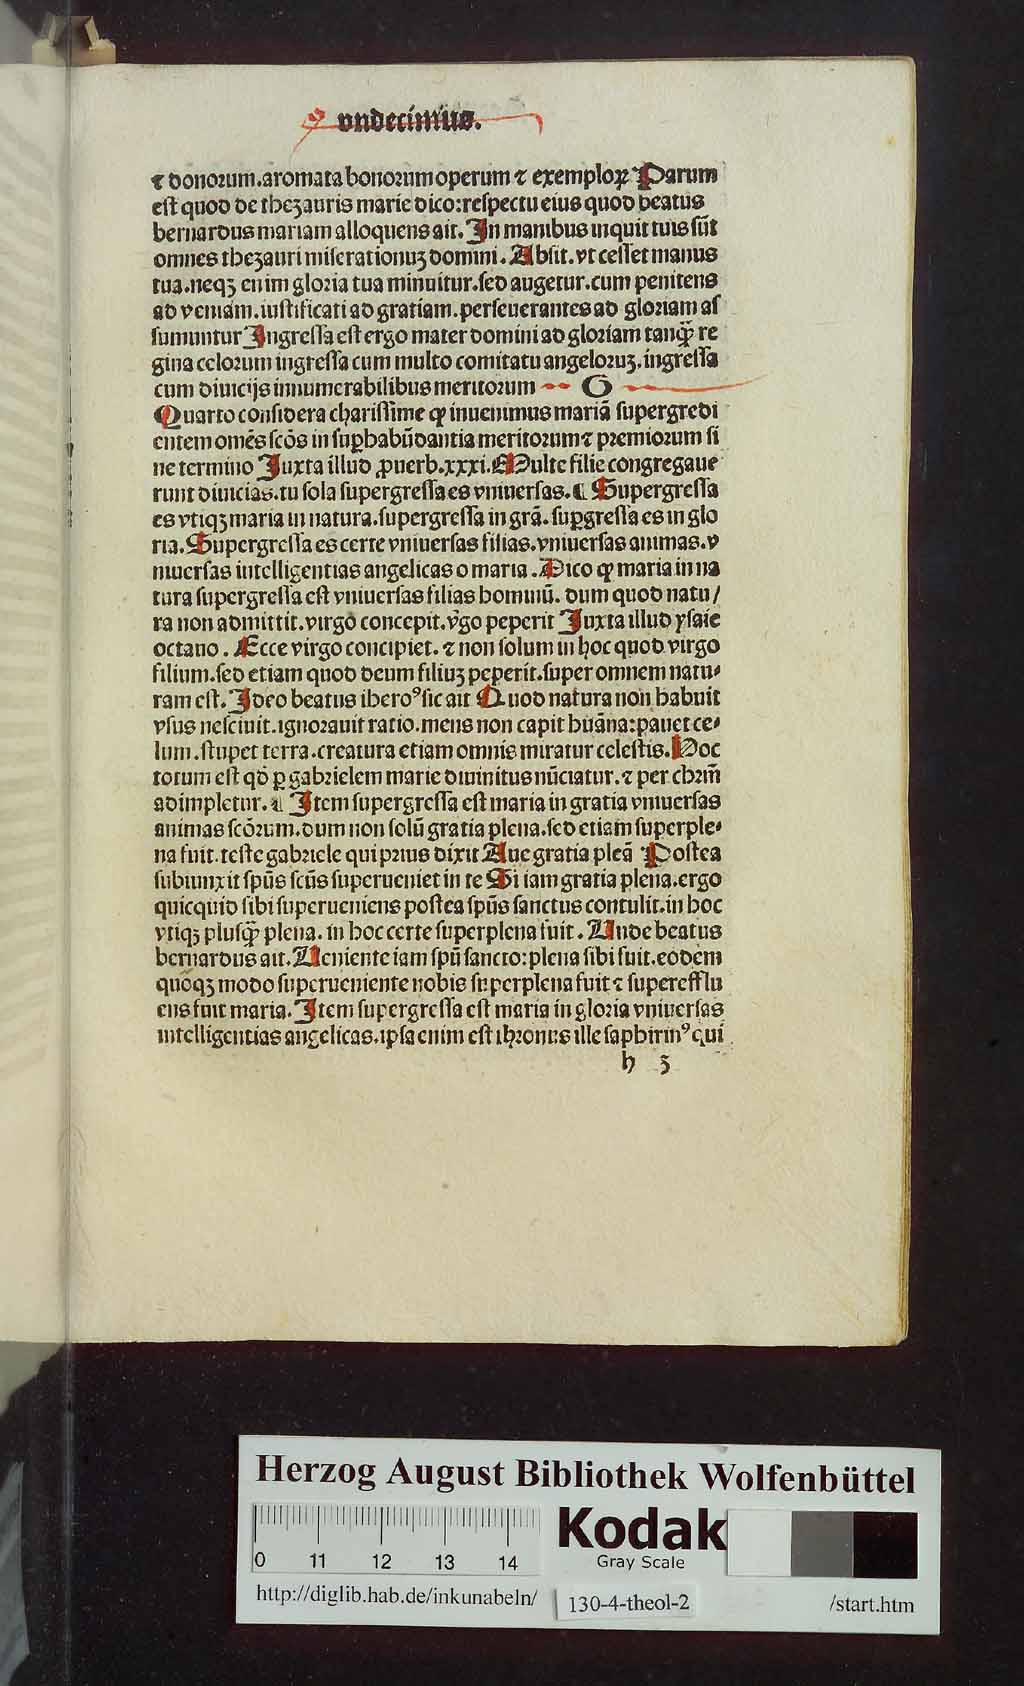 vndecimus.
⁊ donorum.aromata bonorum operum ⁊ exemploꝝ Parum
est quod de thezauris marie dico:respectu eius quod beatus
bernardus mariam alloquens ait. In manibus inquit tuis sūt
omnes thezauri miserationuꝫ domini. Absit.vt cesset manus
tua.neqꝫ enim gloria tua minuitur.sed augetur.cum penitens
ad veniam.iustificati ad gratiam.perseuerantes ad gloriam as
sumuntur Ingressa est ergo mater domini ad gloriam tanqꝫ re
gina celorum ingressa cum multo comitatu angeloruꝫ.ingressa
cum diuicijs innumerabilibus meritorum G
Quarto considera charissime ꝙ inuenimus mariā supergredi
entem omēs scōs in suꝑhabūdantia meritorum ⁊ premiorum si
ne termino Iuxta illud ꝓuerb.xxxi. Multe filie congregaue
runt diuicias.tu sola supergressa es vniuersas. ¶ Supergressa
es vtiqꝫ maria in natura.supergressa in grā. suꝑgressa es in glo
ria. Supergressa es certe vniuersas filias.vniuersas animas.v
niuersas intelligentias angelicas o maria. Dico ꝙ maria in na
tura supergressa est vniuersas filias hominū. dum quod natu/
ra non admittit.virgo concepit.v̄go peperit Iuxta illud ysaie
octauo. Ecce virgo concipiet. ⁊ non solum in hoc quod virgo
filium.sed etiam quod deum filiuꝫ peperit.super omnem natu⸗
ram est. Ideo beatus iheroꝰ sic ait Quod natura non habuit
vsus nesciuit.ignorauit ratio.mens non capit huāna:pauet ce⸗
lum.stupet terra.creatura etiam omnis miratur celestis. Hoc
totum est qd̄ ꝑ gabrielem marie diuinitus nūciatur. ⁊ per chrm̄
adimpletur. ¶ Item supergressa est maria in gratia vniuersas
animas scōrum.dum non solū gratia plena.sed etiam superple⸗
na fuit.teste gabriele qui prius dixit Aue gratia pleā Postea
subiunxit spūs scūs superueniet in te Si iam gratia plena.ergo
quicquid sibi superueniens postea spūs sanctus contulit.in hoc
vtiqꝫ plusqꝫ plena. in hoc certe superplena fuit. Unde beatus
bernardus ait. Ueniente iam spū sancto:plena sibi fuit.eodem
quoqꝫ modo superueniente nobis superplena fuit ⁊ superefflu
ens fuit maria. Item supergressa est maria in gloria vniuersas
intelligentias angelicas.ipsa enim est thronus ille saphirinꝰ qui
h 3
Herzog August Bibliothek Wolfenbüttel
0 11 12 13 14
Kodak
Gray Scale
http://diglib.hab.de/inkunabeln/ 130-4-theol-2 /start.htm